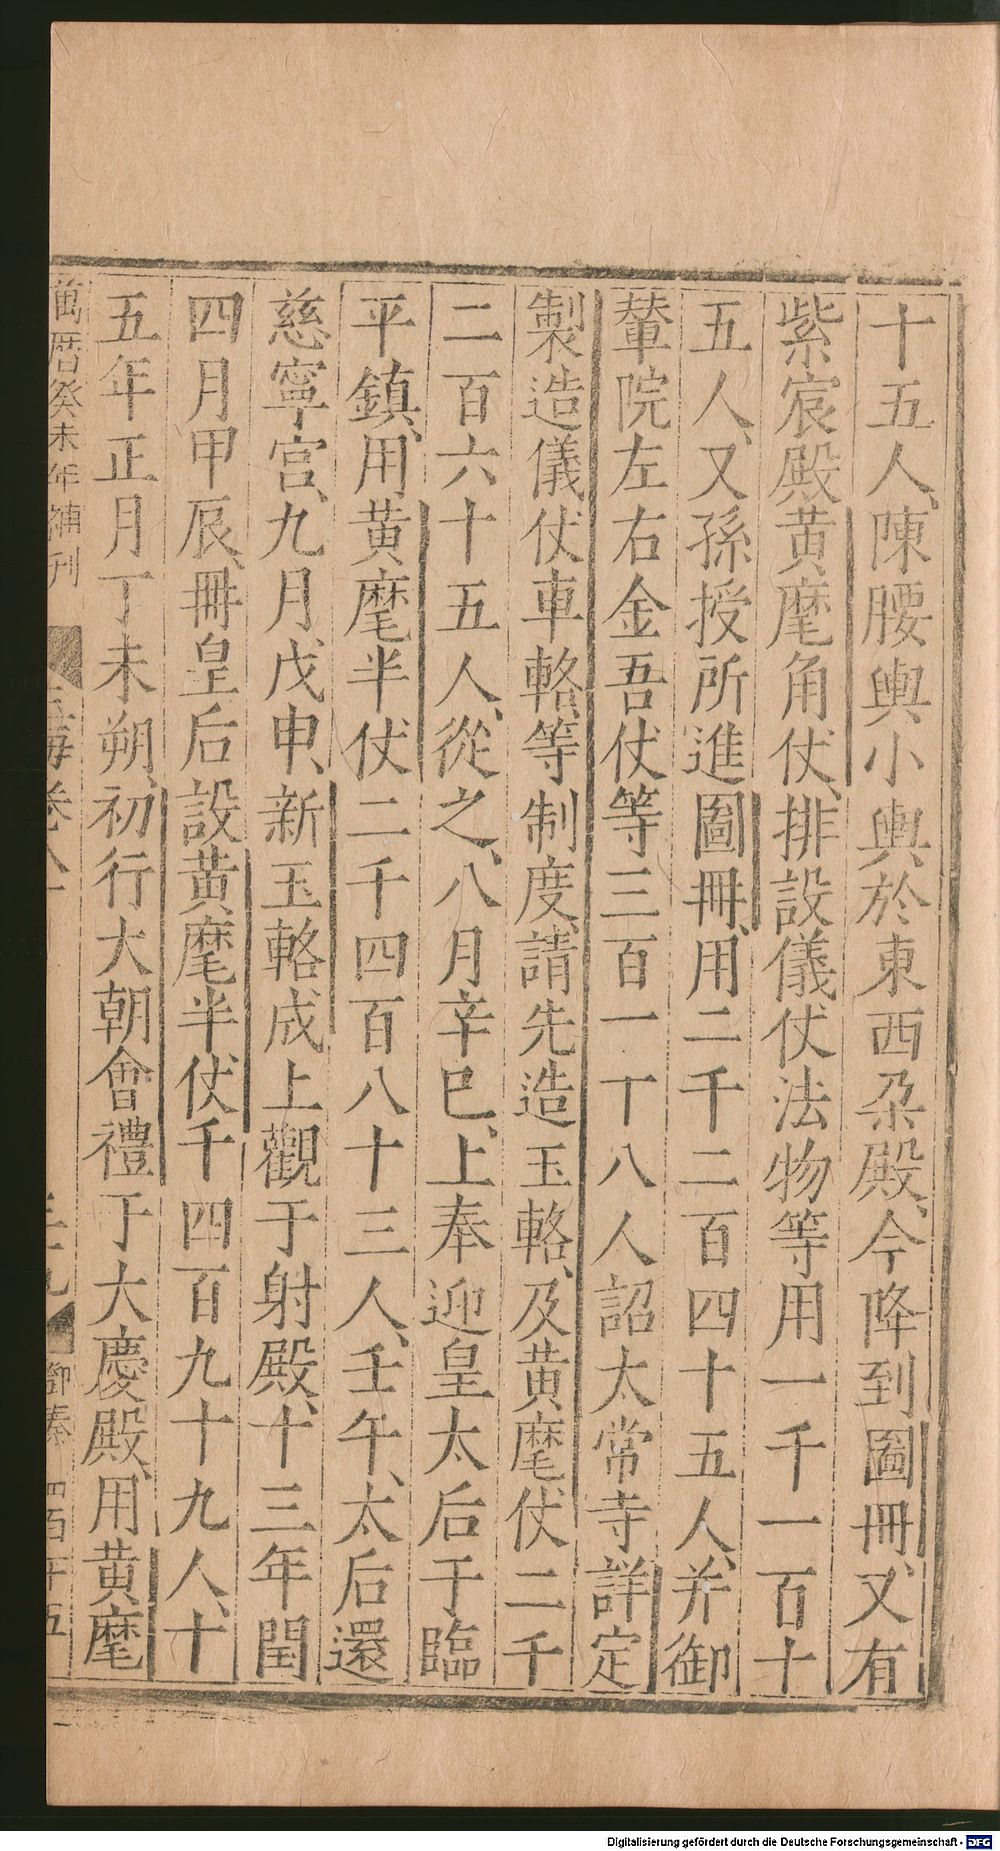 十五人、陳腰輿小輿於東西朶殿、今降到圖冊、又有
紫宸殿黄麾角仗、排設儀仗法物等用一千一百十
五人、又孫授所進圖冊、用二千二百四十五人、并御
輦院左右金吾仗等三百一十八人詔太常寺詳定
製造儀仗車輅等制度、請先造玉輅、及黄麾仗二千
二百六十五人、從之、八月辛巳、上奉迎皇太后于臨
平鎮、用黄麾半仗二千四百八十三人、壬午、太后還
慈寧宫、九月戊申、新玉輅成上觀于射殿、十三年閏
四月甲辰、冊皇后設黄麾半仗千四百九十九人、十
五年正月丁未朔、初行大朝會禮于大慶殿、用黄麾
萬曆癸未年補刊 玉海卷八十 三十九 鄧秦 四百十五
Digitalisierung gefördert durch die Deutsche Forschungsgemeinschaft - DFG